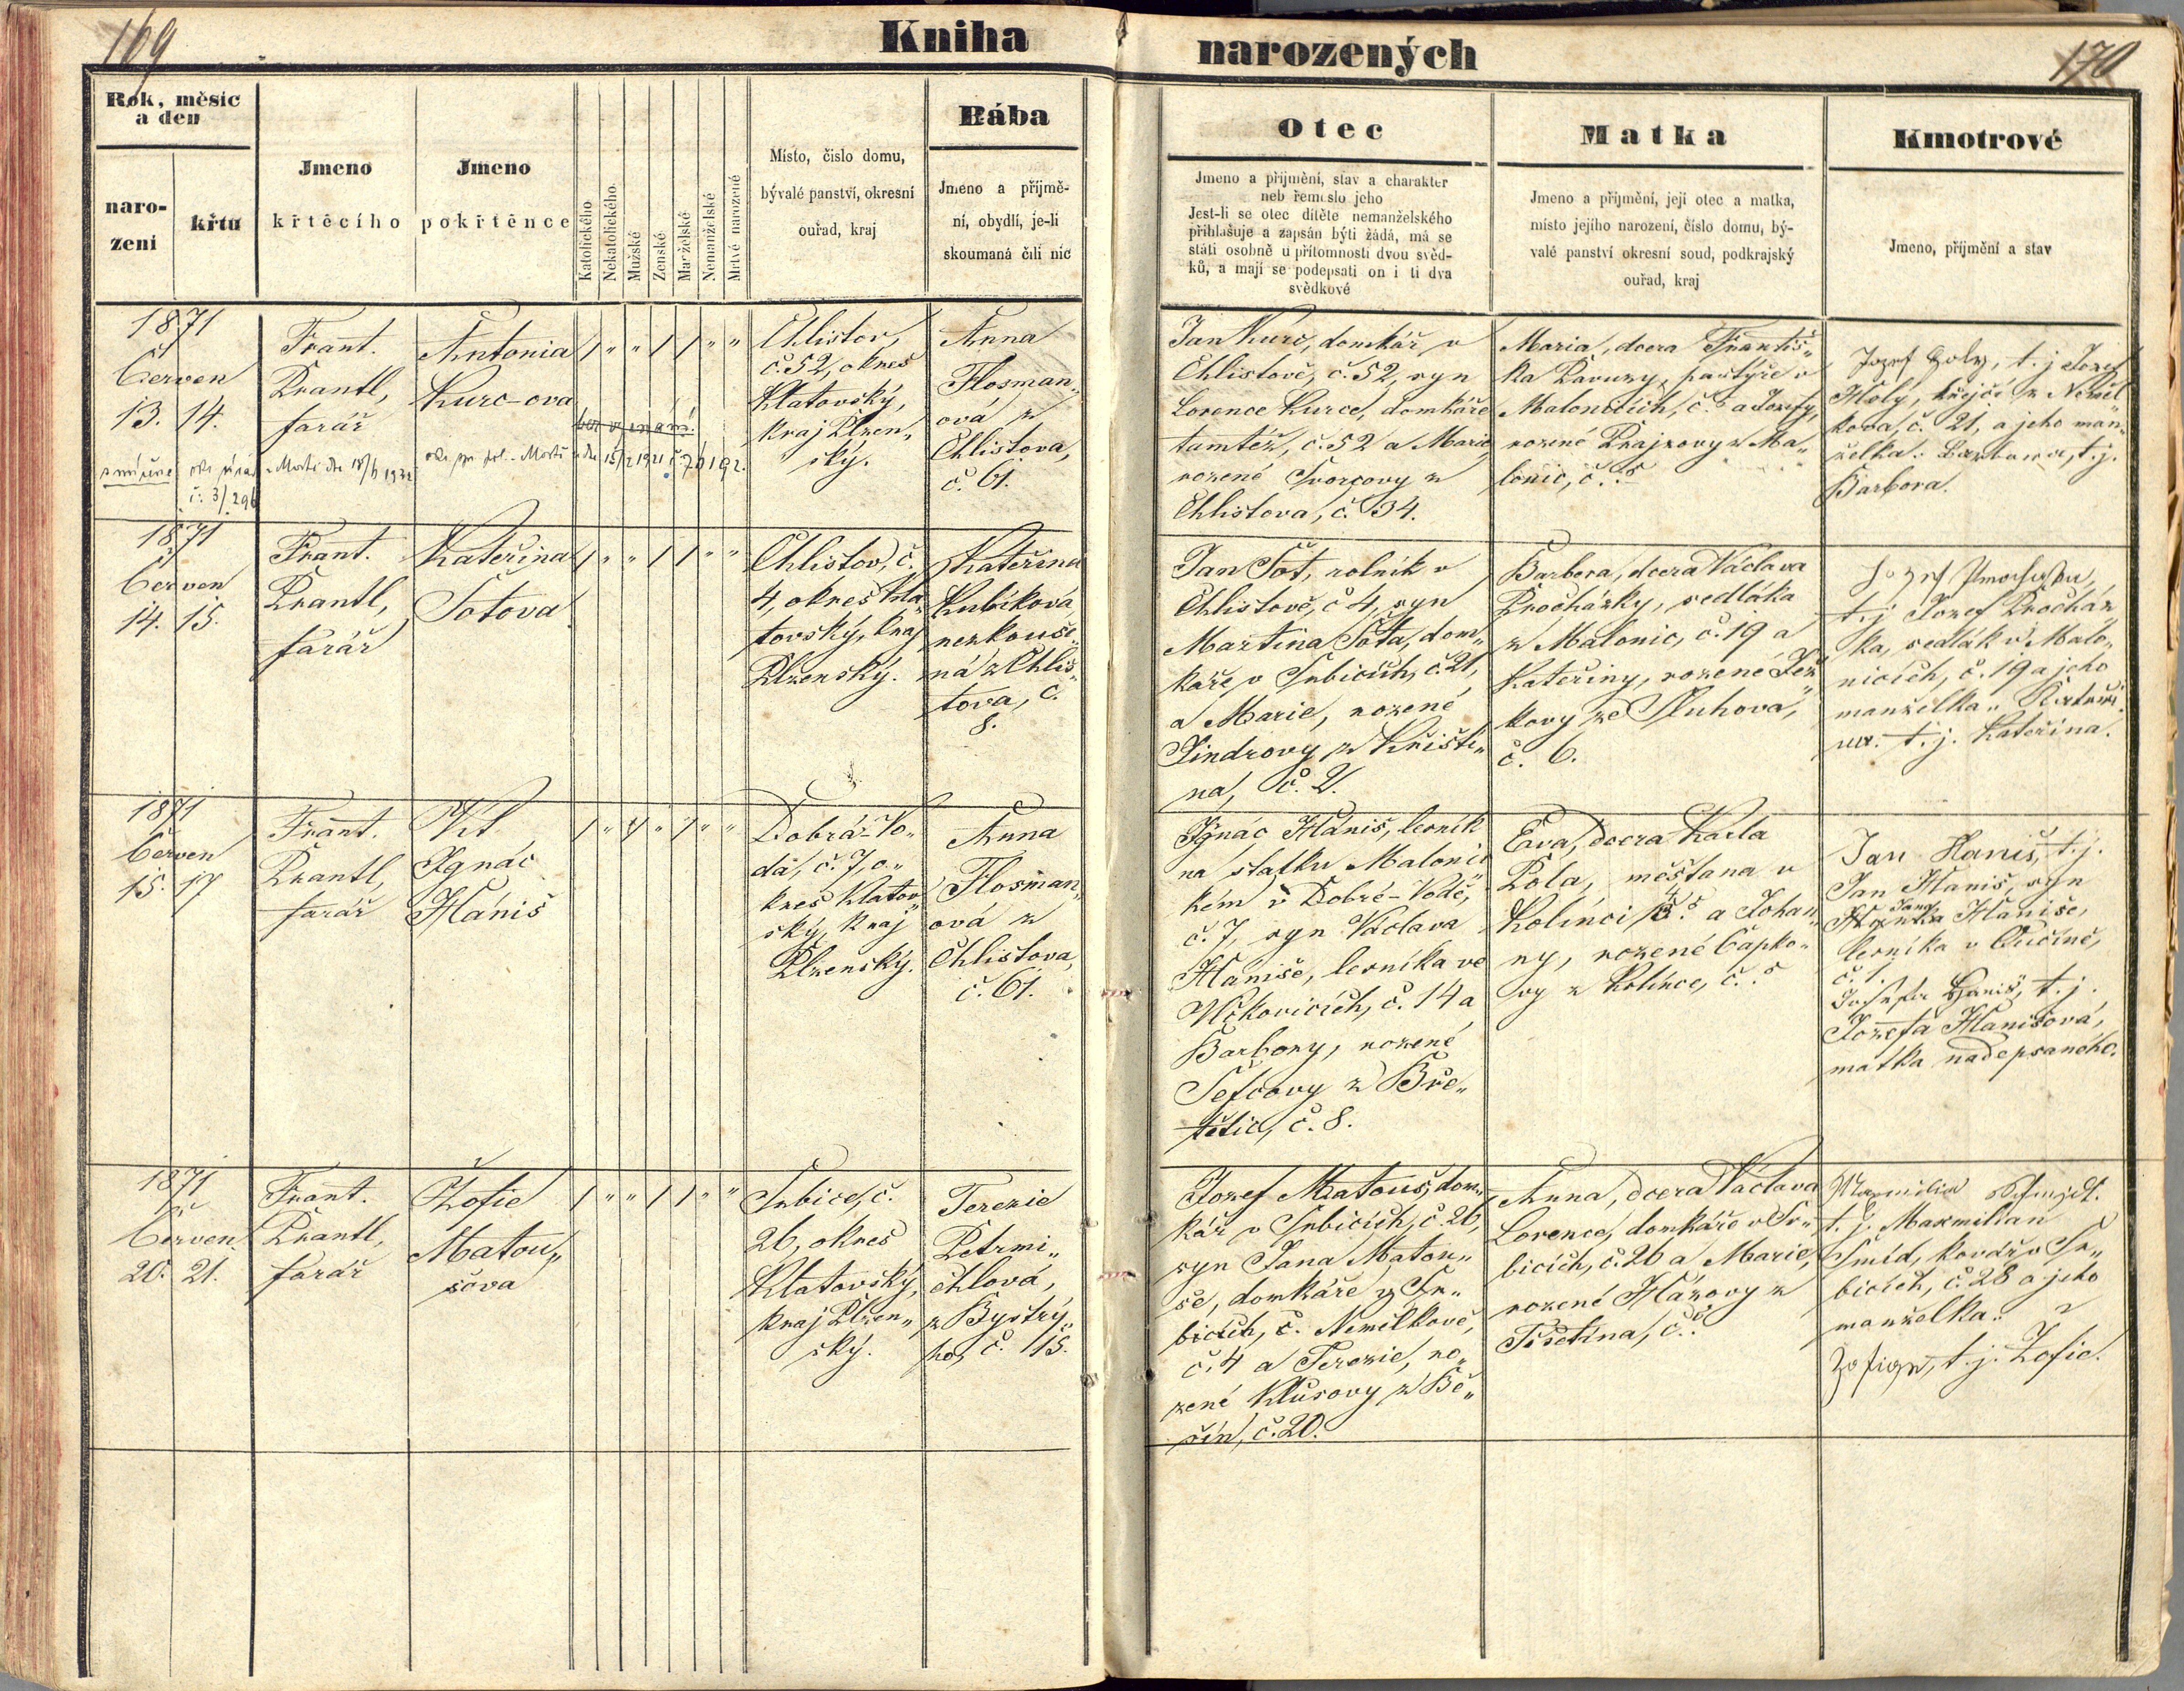 169
Kniha
narozených
170
Rok, měsíc
a den
naro-
zení
křtu
Jmeno
křtěcího
Jmeno
pokřtěnce
Katolického
Nekatolického
Mužské
Zenské
Manželské
Nemanželské
Mrtvě narozené
Místo, číslo domu,
bývalé panství, okresní
ouřad, kraj
Bába
Jmeno a příjmě-
ní, obydlí, je-li
skoumaná čili nic
Otec
Jmeno a přijmění, stav a charakter
neb řemeslo jeho
Jest-li se otec dítěte nemanželského
přihlašuje a zapsán býti žádá, má se
státi osobně u přítomnosti dvou svěd-
ků, a mají se podepsati on i ti dva
svědkové
Matka
Jmeno a příjmění, její otec a matka,
místo jejího narození, číslo domu, bý-
valé panství okresní soud, podkrajský
ouřad, kraj
Kmotrové
Jmeno, příjmění a stav
1871
Červen
13. 14.
č. 3/296
Frant.
Prantl,
farář
Antonia
Kurc-ova
bez vyznání
1 " " 1 1 " "
Chlistov,
č. 52, okres
Klatovský,
kraj Plzen„
ský.
Anna
Flosman„
ova z
Chlistova,
č. 61.
Jan Kurc, domkář v
Chlistově, č. 52, syn
Lorence Kurce, domkáře
tamtéž, č. 52 a Marie,
rozené Tvorcovy z
Chlistova, č. 34.
Maria, dcera Františ„
ka Pavuzy, pastýře v
Malonicích, č. ? a Josefy,
rozené Krajzovy z Ma„
lonic, č. ?
Jozef Holy, t. j. Jozef
Holy, krejčí z Neměl
kova, č. 21, a jeho man„
želka: Barbara, t. j.
Barbora.
1871
Červen
14. 15.
Frant.
Prantl,
farář
Kateřina
Šotova
1 " " 1 1 " "
Chlistov, č.
4, okres Kla„
tovský, kraj
Plzenský.
Kateřina
Kubíkova
nezkouše„
ná z Chlis„
tova, č.
8.
Jan Šot, rolník v
Chlistově, č. 4, syn
Martina Šota, dom„
káře v Srbicích, č. 21,
a Marie, rozené
Jindrovy z Křišti„
na, č. 2.
Barbora, dcera Václava
Procházky, sedláka
z Malonic, č. 19 a
Kateřiny, rozené Jež„
kovy ze Sluhova,
č. 6.
t. j. Jozef Procház
ka, sedlák v Malo„
nicích, č. 19 a jeho
manželka„
t. j. Kateřina.
1871
Červen
15. 17
Frant.
Prantl,
farář
Vít
Ignác
Hániš
1 " 1 " 1 " "
Dobrá Vo„
da, č. 7, o„
kres Klatov„
ský, kraj
Plzenský.
Anna
Flosman„
ova z
Chlistova,
č. 61.
Ignác Hániš, lesník
na statku Malonic„
kém v Dobré-Vodě,
č. 7, syn Václava
Haniše, lesníka ve
Vlčkovicích, č. 14 a
Barbory, rozené
Šefcovy z Bře„
tětic, č. 8.
Eva, dcera Karla
Pola, měšťana v
Kolinci, č. ? a Johan„
ny, rozené Čapko„
vy z Kolince, č. ?
Jan Haniš, t. j.
Jan Haniš, syn
Jana
Haniše,
lesníka v Lučině,
č. 1.
Josefa Haniš, t. j.
Jozefa Hanišová,
matka nadepsaného.
1871
Červen
20. 21.
Frant.
Prantl,
farář
Žofie
Matou„
šova
1 " " 1 1 " "
Srbice, č.
26, okres
Klatovský,
kraj Plzen„
ský.
Terezie
Petrmi„
chlová,
z Bystrý„
ho, č. 15.
Jozef Matouš, dom„
kář v Srbicích, č. 26,
syn Jana Matou„
še, domkáře v Sr„
bicích, č. Nemilkově,
č. 4 a Terezie, ro„
zené Klusovy z Bě„
šin, č. 20.
Anna, dcera Václava
Lorence, domkáře v Sr„
bicích, č. 26 a Marie,
rozené Házovy z
Třsetina, č. ?
Maxmilian Schmidt.
t. j. Maxmilian
Šmíd, kovář v Sr„
bicích, č. 28 a jeho
manželka„
t. j. Žofie.